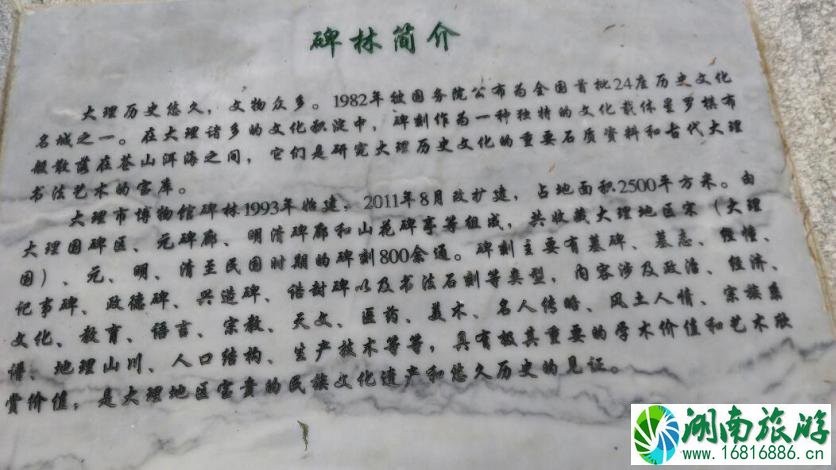 碑林简介
大理历史悠久，文物众多。1982年被国务院公布为全国首批24座历史文化
名城之一。在大理诸多的文化积淀中，碑刻作为一种独特的文化载体星罗棋布
般散落在苍山洱海之间，它们是研究大理历史文化的重要石质资料和古代大理
书法艺术的宝库。
大理市博物馆碑林1993年始建，2011年8月改扩建，占地面积2500平方米。由
大理国碑区、元碑廊、明清碑廊和山花碑亭等组成，共收藏大理地区宋（大理
国）、元、明、清至民国时期的碑刻800余通。碑刻主要有墓碑、墓志、经幢、
记事碑、政德碑、兴造碑、诰封碑以及书法石刻等类型，内容涉及政治、经济、
文化、教育、语言、宗教、天文、医药、美术、名人传略、风土人情、宗族系
谱、地理山川、人口结构、生产技术等等，具有极其重要的学术价值和艺术欣
赏价值，是大理地区宝贵的民族文化遗产和悠久历史的见证。
湖南旅游
www.16816886.cn